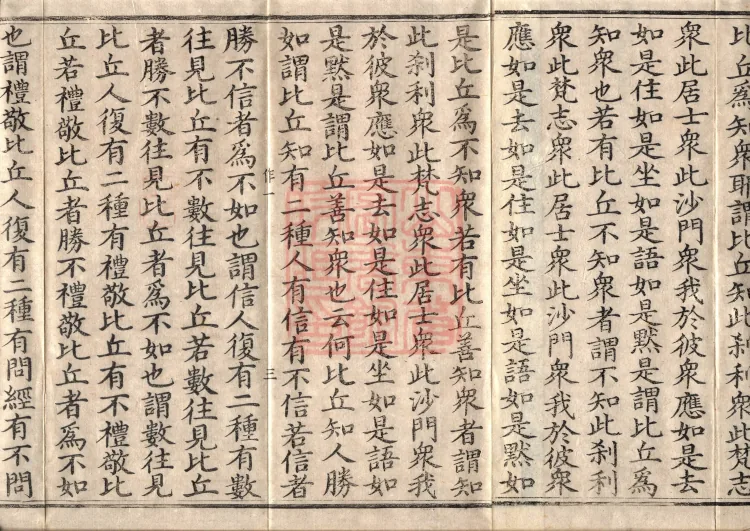 比丘爲知衆耶謂比丘知此刹利衆此梵志
衆此居士衆此沙門衆我於彼衆應如是去
如是住如是坐如是語如是默是謂比丘爲
知衆也若有比丘不知衆者謂不知此刹利
衆此梵志衆此居士衆此沙門衆我於彼衆
應如是去如是住如是坐如是語如是默如
是比丘爲不知衆若有比丘善知衆者謂知
此刹利衆此梵志衆此居士衆此沙門衆我
於彼衆應如是去如是住如是坐如是語如
是默是謂比丘善知衆也云何比丘知人勝
如謂比丘知有二種人有信有不信若信者
作一
三
勝不信者爲不如也謂信人復有二種有數
往見比丘有不數往見比丘若數往見比丘
者勝不數往見比丘者爲不如也謂數往見
比丘人復有二種有禮敬比丘有不禮敬比
丘若禮敬比丘者勝不禮敬比丘者爲不如
也謂禮敬比丘人復有二種有問經有不問